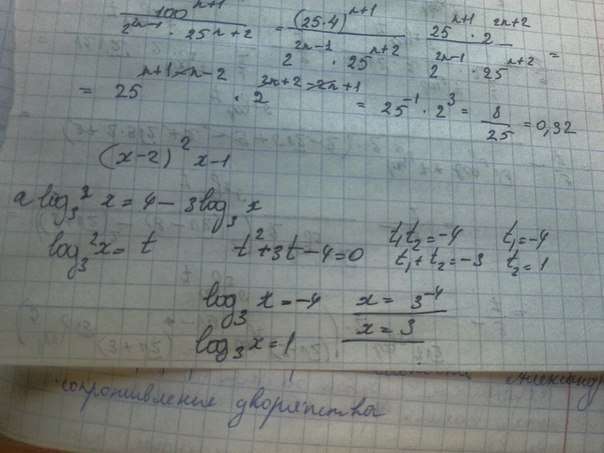 100^{n+1} / (2^{2n-1} · 25^{n+2}) = (25·4)^{n+1} / (2^{2n-1} · 25^{n+2}) = 25^{n+1} · 2^{2n+2} / (2^{2n-1} · 25^{n+2}) =
= 25^{n+1-n-2} · 2^{2n+2-2n+1} = 25^{-1} · 2^3 = 8/25 = 0,32
(x-2)^2 x-1
a log_3^2 x = 4 - 3 log_3 x
log_3^2 x = t t^2+3t-4=0 t_1t_2=-4 t_1=-4
t_1+t_2=-3 t_2=1
log_3 x = -4 x = 3^{-4}
log_3 x = 1 x = 3
Александр
сопротивление дворянства